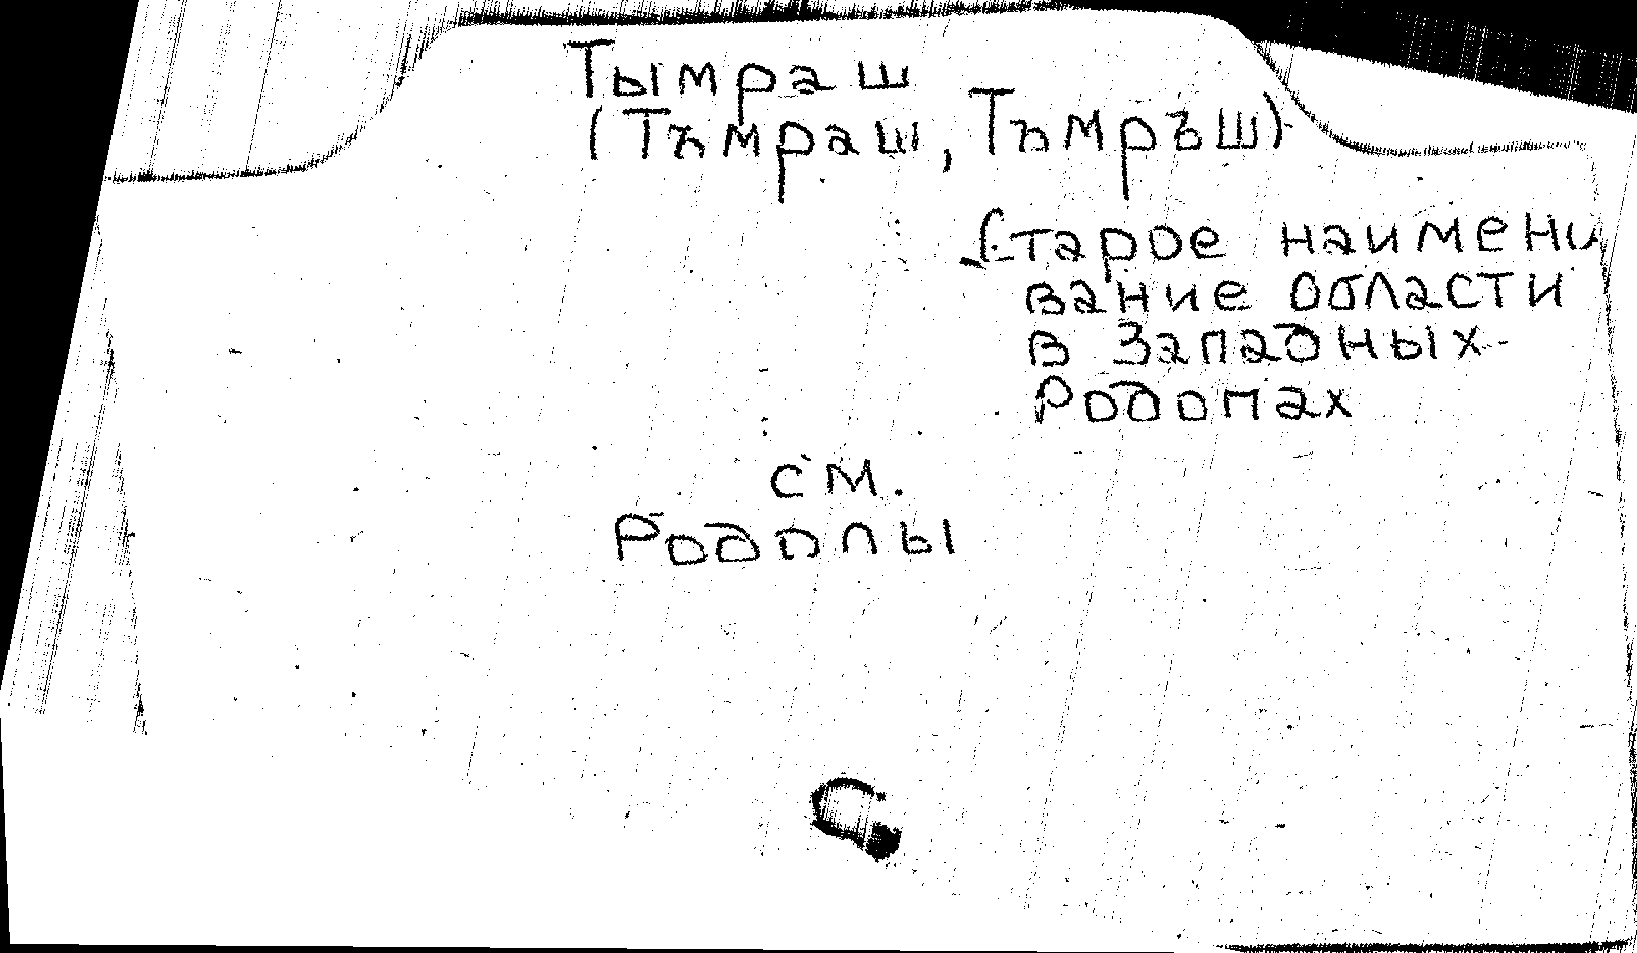 Тымраш
(Тъмраш, Тъмръш)
Старое наимени
вание области
в Западных
Родопах
см.
Родопы